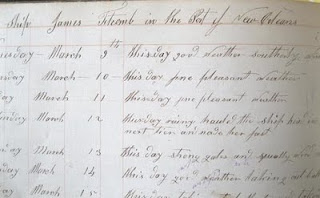 Ship James Titcomb in the Port of New Orleans
day March 9th this day good weather
day March 10 this day fine pleasant weather
day March 11 this day fine pleasant weather
day March 12 this day rainy hauled the ship
next tier and made her fast
day March 13 this day strong gales and squally
day March 14 this day good weather taking
day March 15 this day